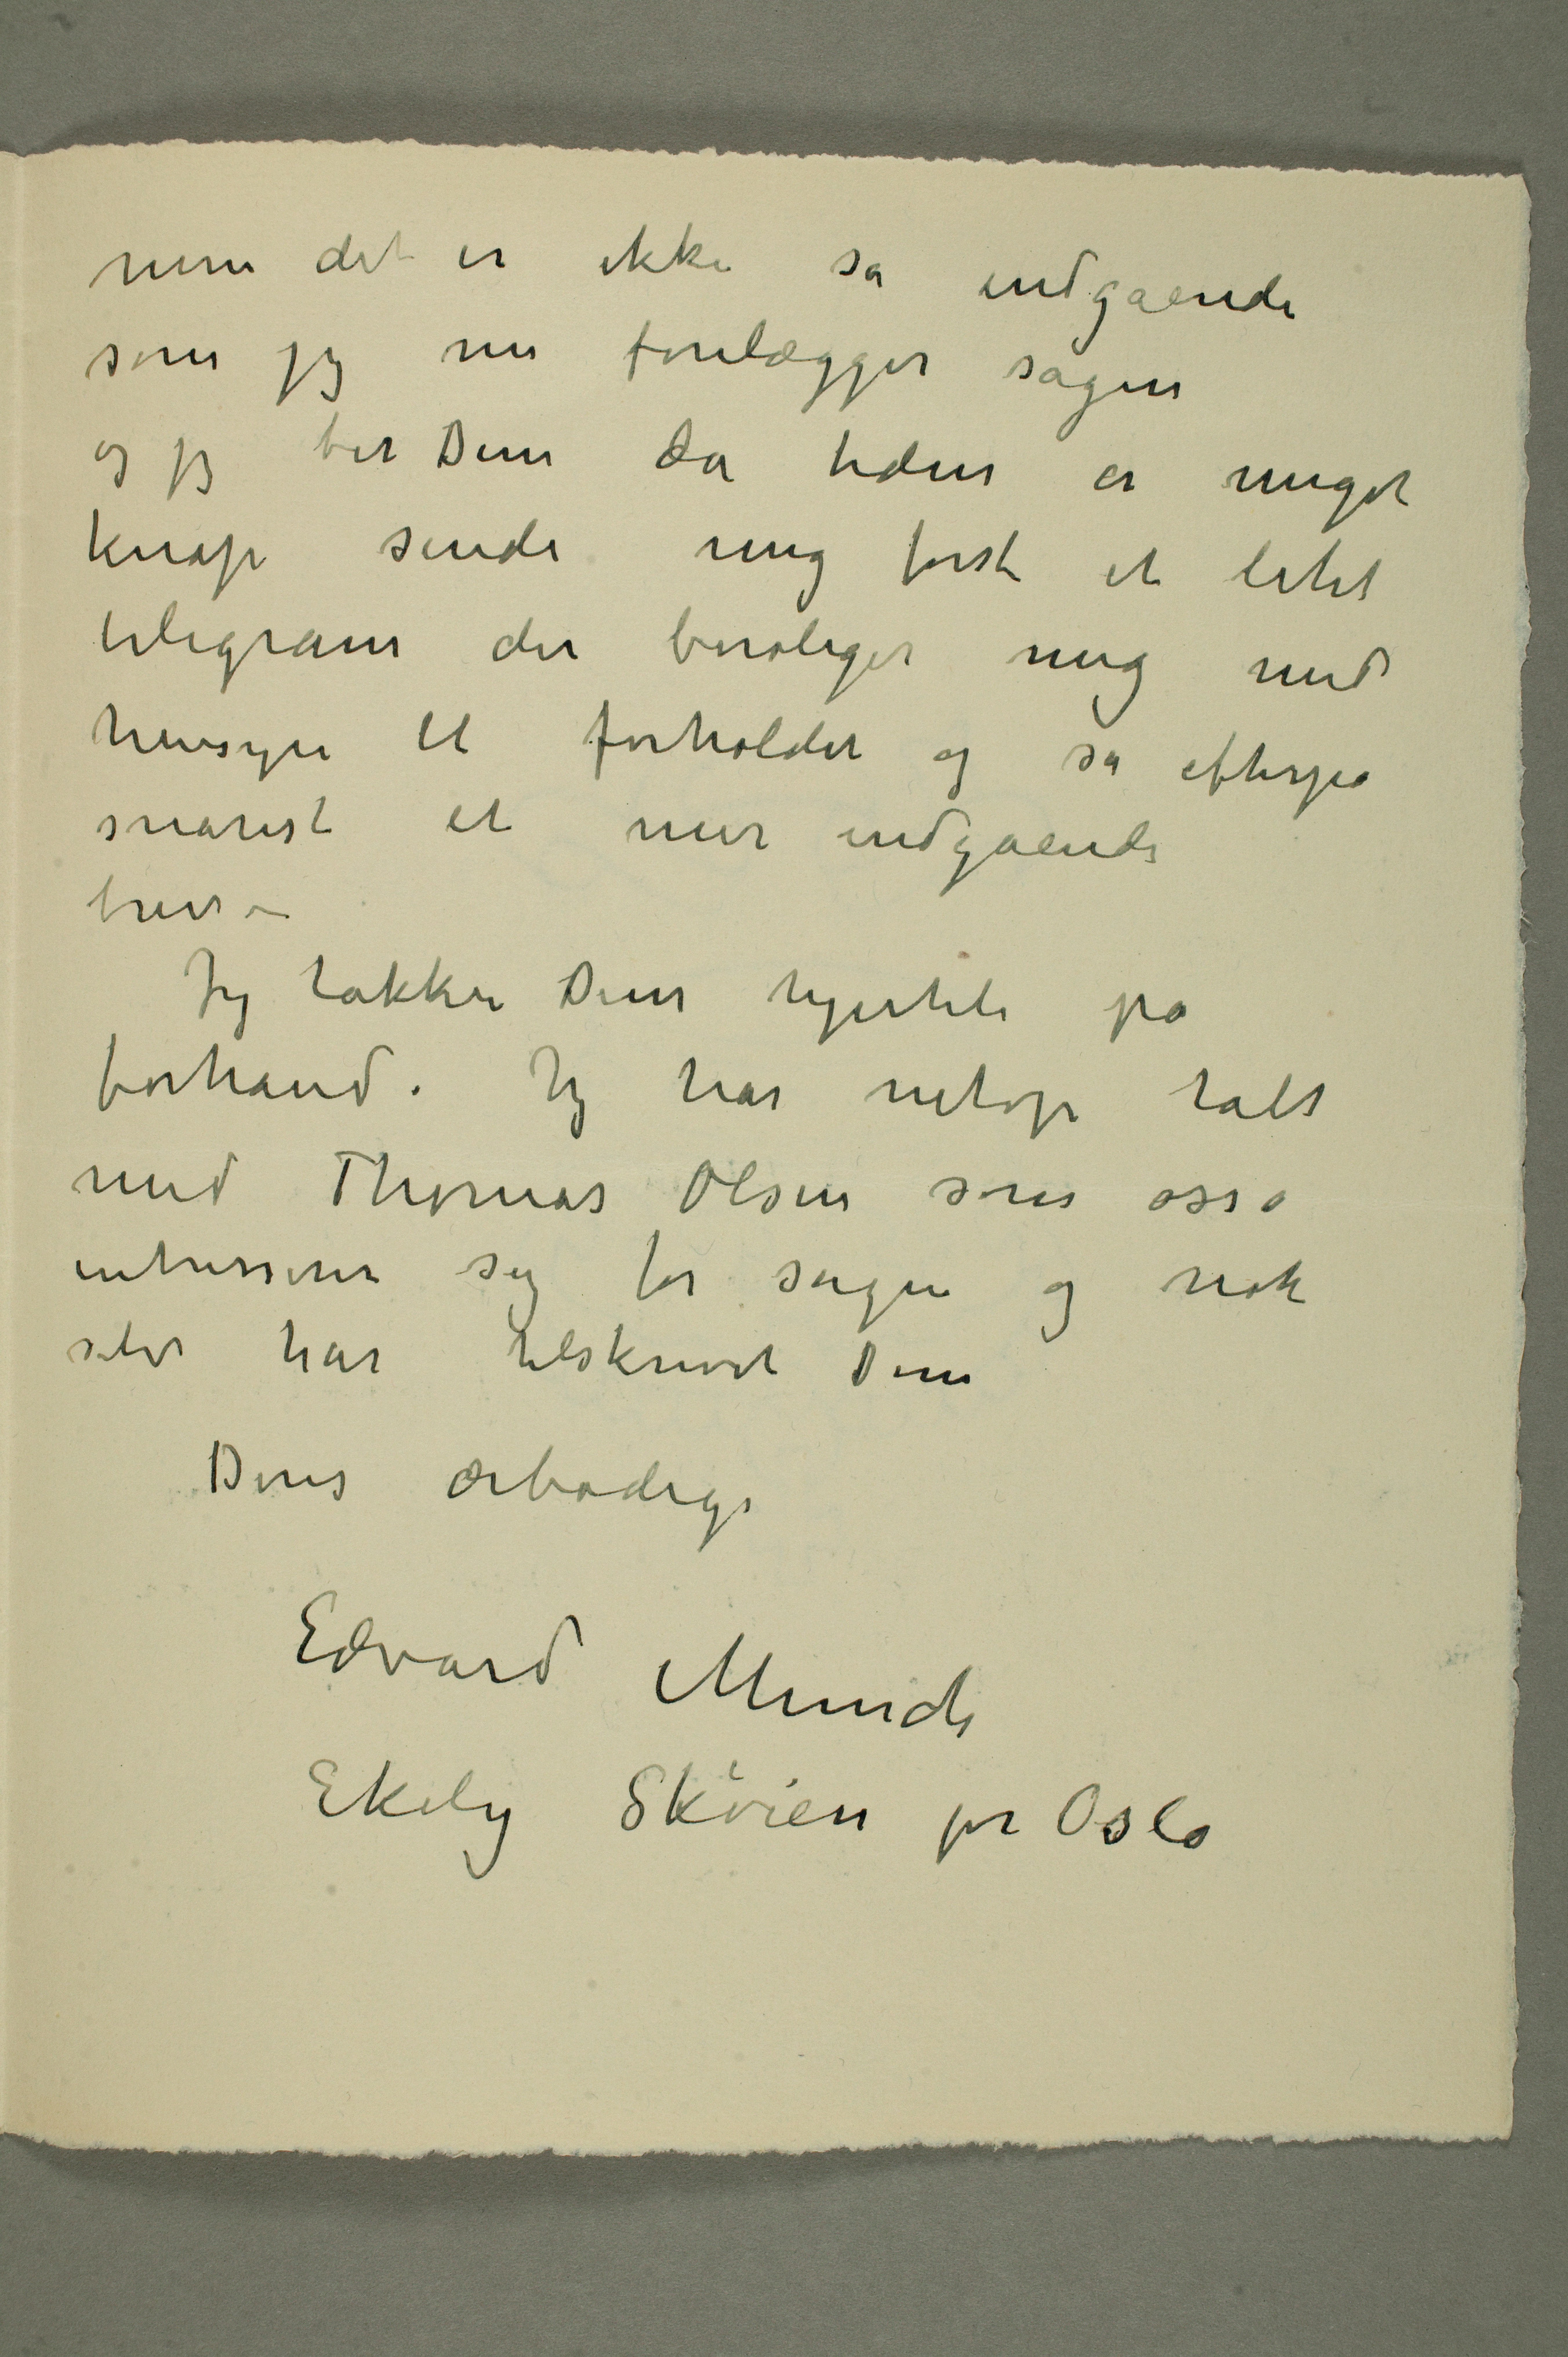 men det er ikke så indgående
som jeg nu forelægger sagen
og jeg ber Dem da tiden er meget
knap sende mig først et litet
telegram der beroliger mig med
hensyn til forholdet og så efterpå
snarest et mer indgående
brev –
Jeg takker Dem hjertelig på
forhånd. Jeg har netop talt
med Thomas Olsen som også
intresserer sig for sagen og nok
selv har tilskrevet Dem
Deres ærbødige
Edvard Munch
Ekely Skøien pr Oslo